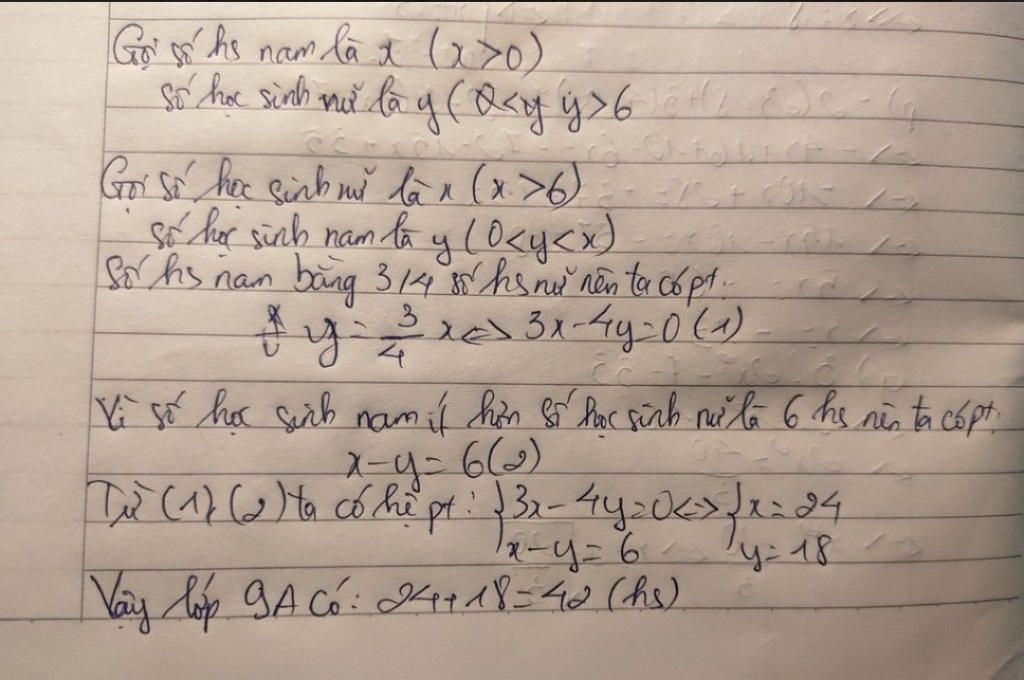 Gọi số hs nam là x (x>0)
số học sinh nữ là y ( 0<y y>6
Gọi số học sinh nữ là x (x>6)
số học sinh nam là y (0<y<x)
Số hs nam bằng 3/4 số hs nữ nên ta có pt:
y = 3/4 x <=> 3x-4y=0 (1)
Vì số học sinh nam ít hơn số học sinh nữ là 6 hs nên ta có pt:
x-y=6(2)
Từ (1), (2) ta có hệ pt: {3x-4y=0 <=> {x=24
x-y=6 y=18
Vậy lớp 9A có: 24+18=42 (hs)